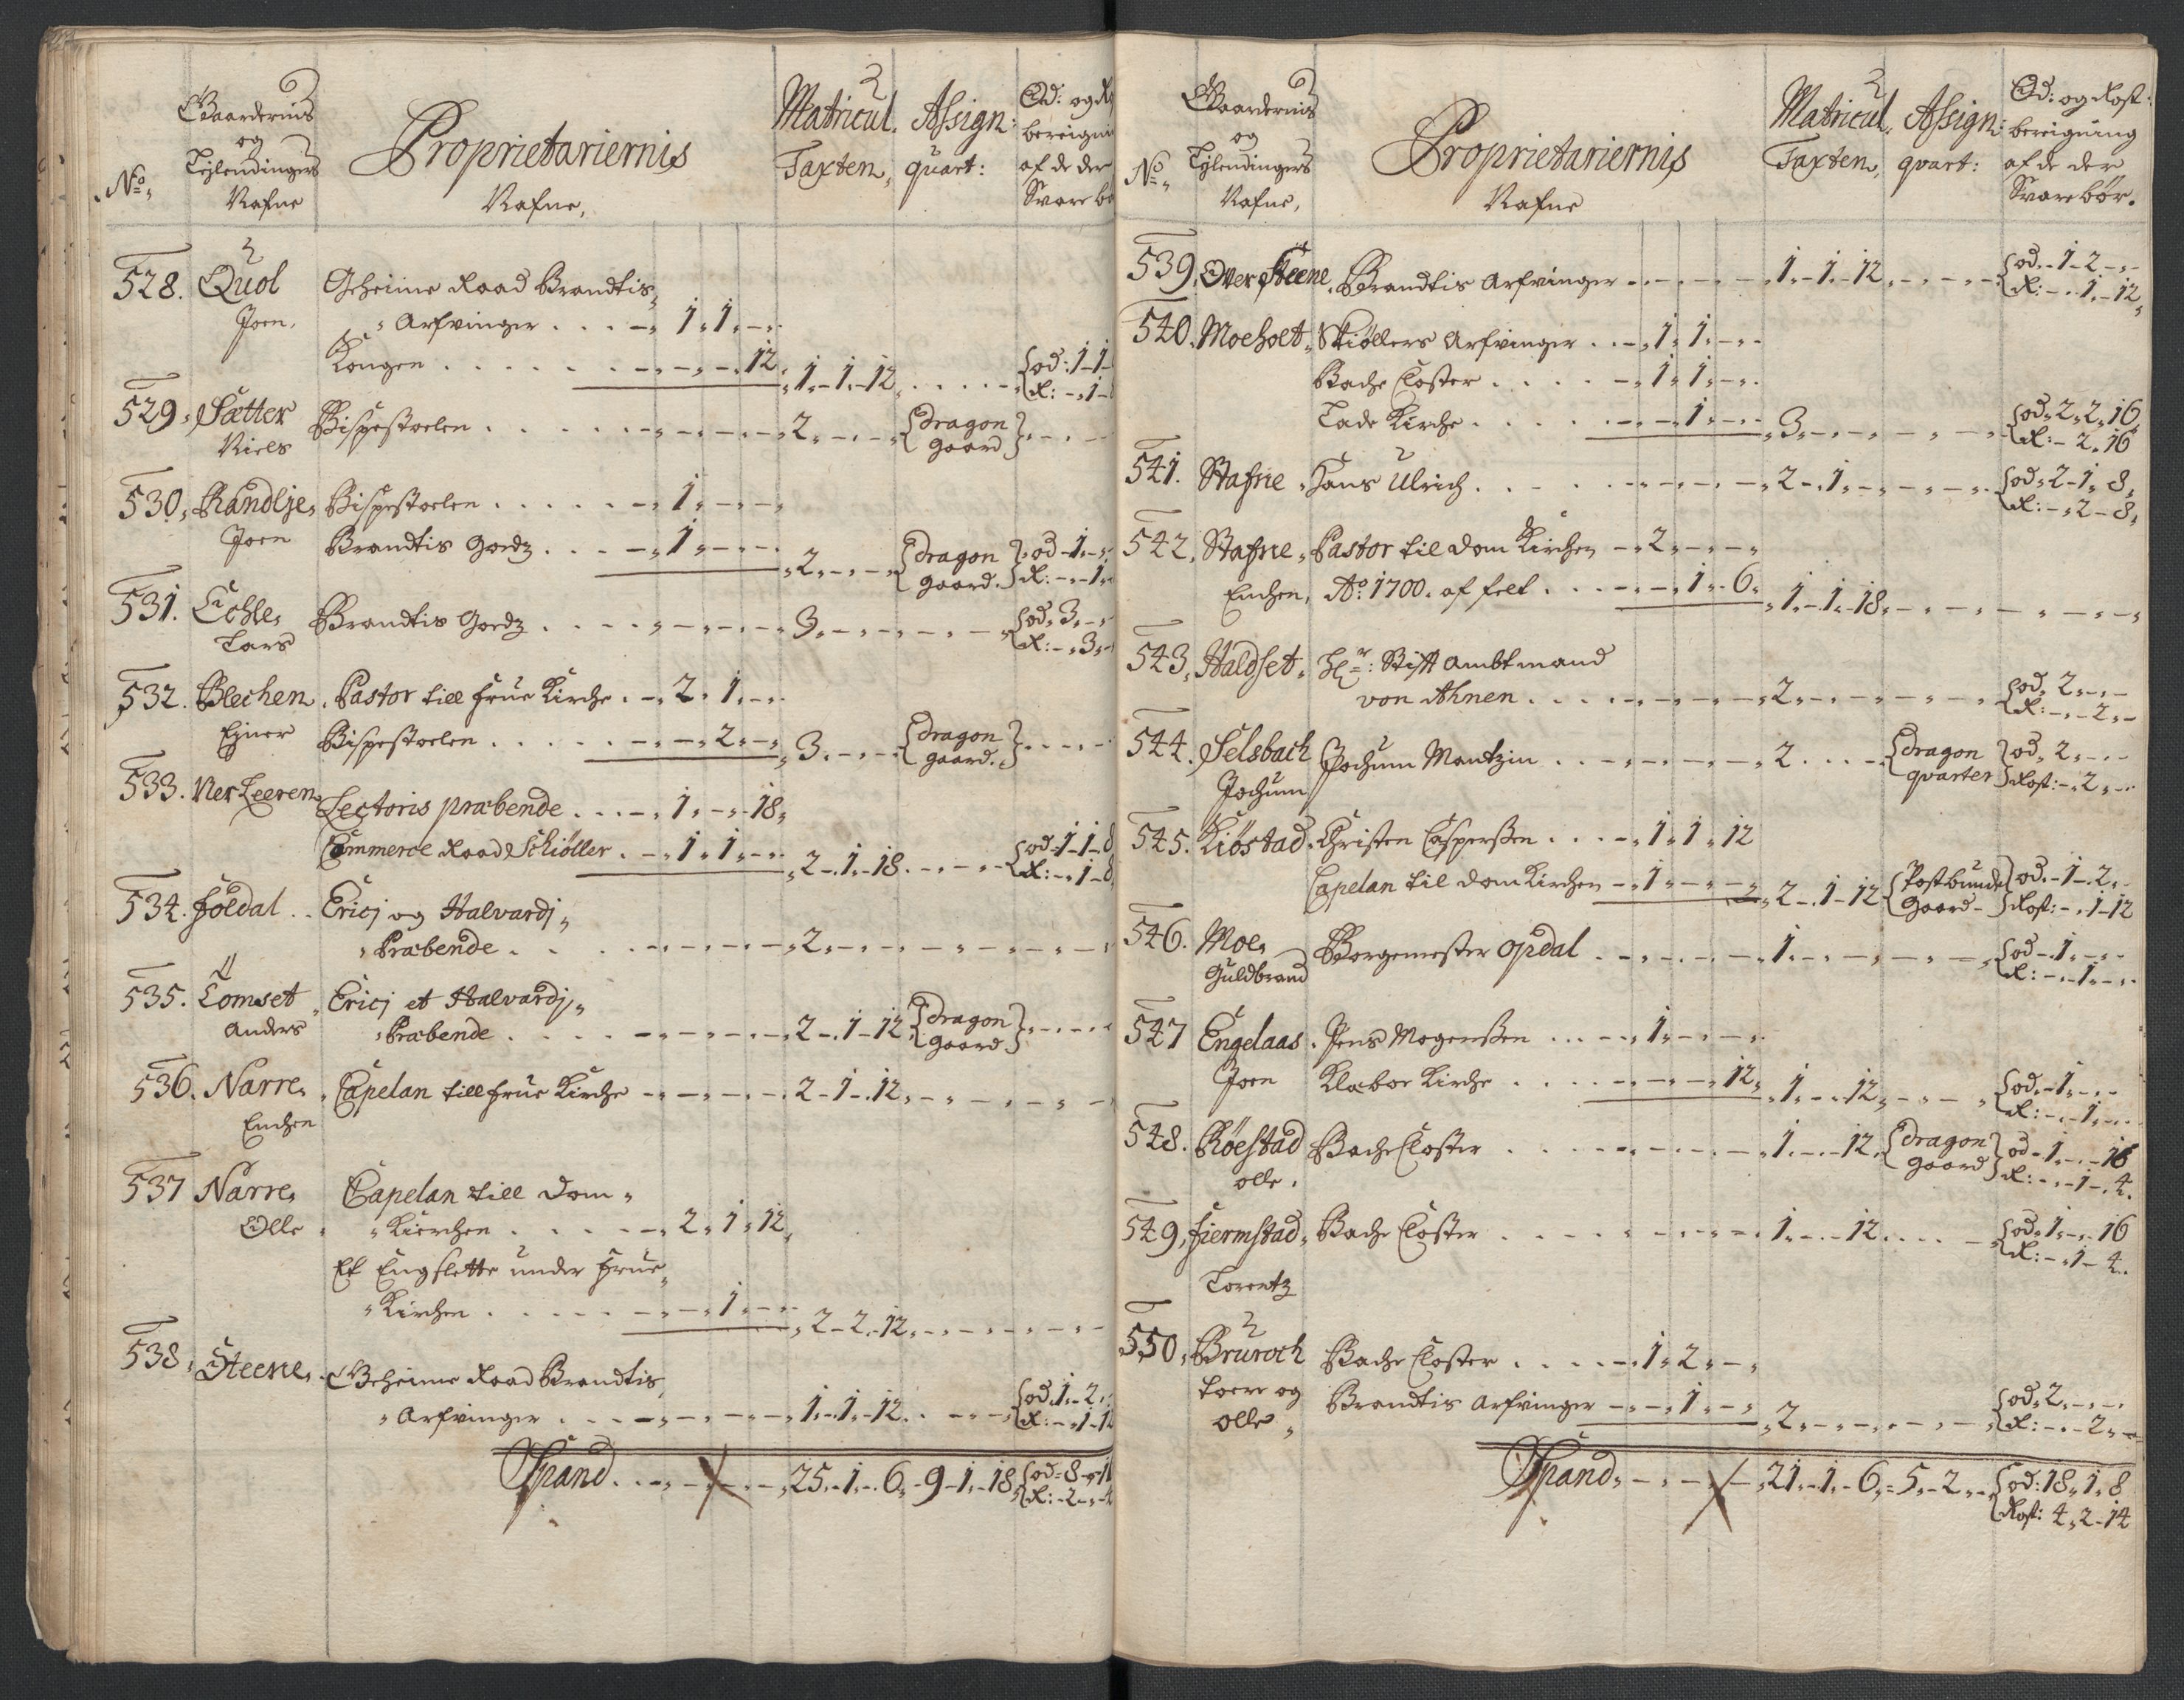 No.
Gaardernis
og
Leylendingers
Nafne
Proprietariernis
Nafne,
Matricul.
Taxten,
Assign:
quart:
Od: og R
bereigni
af de der
Svare bø
528. Quol Geheime Raad Brandtis
Joen, Arfvinger . . . - 1. 1. -
Kongen . . . . . - - - 12. 1. - 1. - 12. . . . . od: 1 - 1 -
R: - . 1 -
529. Sætter Bispestoelen . . . . - - - 2. - - - dragon
Niels gaard
530. Randlje, Bispestoelen . . . . . - 1. - - -
Joen Brandtis Goedz. . . . - 1. - - - 2. - - - dragon od - 1. -
gaard. R: - . - 1.
531. Echle, Brandtis Godz . . . . - - - - 3. - - - - - od. 3. -
Lars R: - . 3. -
532. Blechen. Pastor till Frue Kirche . - 2. 1. -
Ejner Bispestoelen . . . . . - - 2. - 3. - - dragon
gaard.
533. Ner Leeren, Lectoris præbende . . . - 1. - . 18.
Commerce Raad Schiøller . - 1. 1. - 2 - . 1. - 18. - - od: 1 - 1 - 8
R: - . 1 - 8
534. Foldal . . Ericj og Halvardj
Præbende . . . . - - - - 2. - - - - - -
535. Lomset Ericj et Halvardj
Anders Præbende . . . . - - - - 2 - . 1 - 12. dragon
gaard
536. Narre, Capelan till Frue Kirche - - - - 2 - 1 - . 12. - - - -
Enchen
537 Narre, Capelan till Dom
Olle Kirchen . . . . . - 2. 1. 12.
Et Engslette under Frue
Kirchen . . . . . - - 1. - - 2 - 2. - 12. - - - -
538. Steene. Geheime Raad Brandtis
Arfvinger . . . - - - - 1. - 1. - 12. . - - od. 1. - 2.
R: - . 1 - 12
Spand . . - - - - 25. - 1. - . 6. - 9 - 1. - 18. od = 8 - 
R: - 2 - . - 4
No.
Gaardernis
og
Leylendingers
Nafne,
Proprietariernis
Nafne
Matricul,
Taxten,
Assign:
qvart:
Od: og Rost:
bereigning
af de der
Svare bør.
539. Over Steene. Brandtis Arfvinger . - - - - 1. - 1. - 12. - - - od. - 1 - 2. -
R: - . 1. - 12.
540. Moeholt, Skiøllers Arfvinger . . - 1. 1. - -
Bache Closter . . . . - 1. 1. - -
Lade Kirche . . . . - - 1. - 3. - - - - - od. 2. 2. 16.
R: - 2. 16
541. Stafne, Hans Ulrich . . - . - - - - 2 - . 1. - - - - od. 2 - 1. 8.
R: - . 2 - 8.
542. Stafne, Pastor til Dom Kirchen - . 2. - - -
Enchen, Ao: 1700. af felt . . . - - 1. . 6. 1. - 1. 18. - - - - - -
543. Haldset, Hr: Stift Ambtmand
von Ahnen . . . . - - - - 2. - - - - - od. 2. - -
R: - . - 2. -
544. Selsbach Jochum Mantzin . . - - - - 2. . . . dragon od. 2. - -
Jochum qvarter Rost: - . 2. -
545. Kiøstad. Christen Casperßen . . . - 1. 1. 12
Capelan til Dom Kirchen - . 1. - - - 2 - . 1 - 12. Postbunde od. - 1 - . 2.
Gaard - Rost: - . 1 - 12
546. Moe, Borgemester Opdal . . - - - - 1. - - - - od - . 1. - -
Guldbrand R: - . - 1. - -
547 Engelaas . Jens Mogenßen . . . - 1. - - -
Joen Klæboe Kirche . . . . - - - 12. 1. - - 12. - - od. - 1. - -
R: - . - 1. - -
548. Røestad Bache Closter . . . - - - - 1. - . - 12. dragon od - 1. - . 16
olle. gaard R: - . - 1 - . 4.
549, Fiermstad, Bache Closter . . . . . - - - 1. - . - 12. . . . . od. 1. - . 16
Lorentz R: - . 1 - 4.
550, Bruroch Bache Closter . . . . - 1. 2. -
Toere og Brandtis Arfvinger - . - 1. - 2. - - - - od. 2. - -
olle R: - . - 2. -
Spand. - . - - - 21. - 1. - 6. = 5. - 2. - od: 18. 1. 8
Rost: 4. 2 - 14